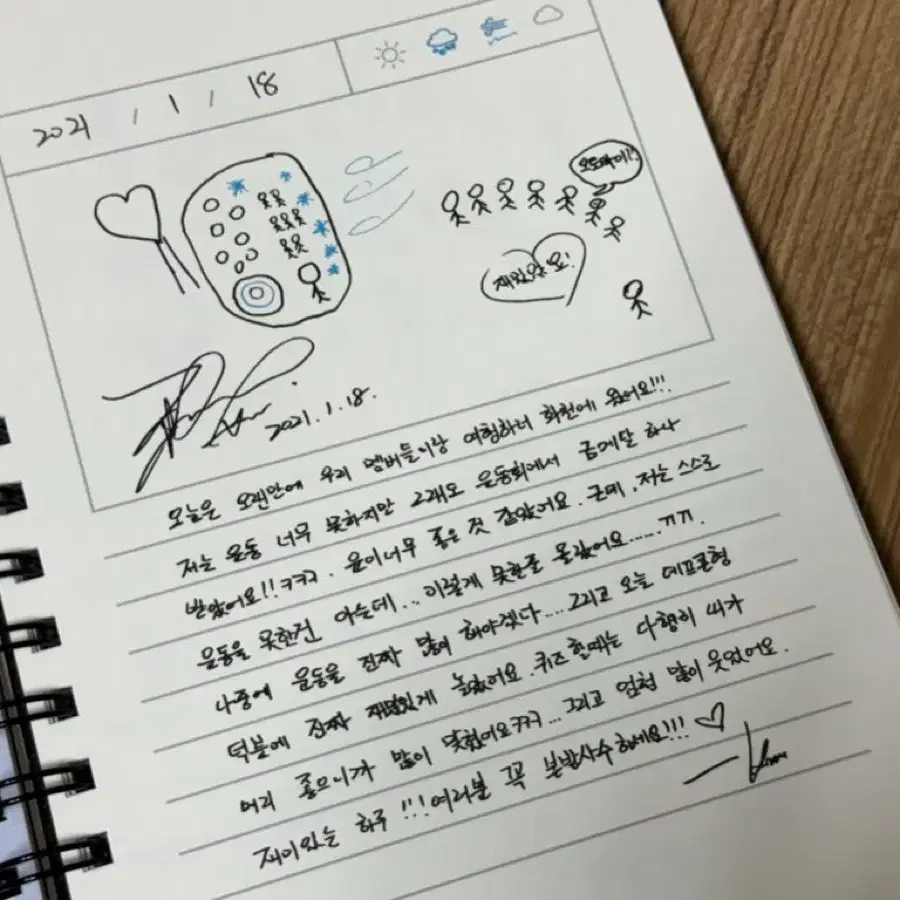 2021 / 1 / 18
재밌었요!
2021.1.18.
오늘은 오랜만에 우리 멤버들이랑 여행하러 화천에 왔어요!!!
저는 운동 너무 못하지만 그래도 운동회에서 금메달 하나
받았어요!!ㅋㅋㅋ. 운이너무 좋은 것 같았어요. 근데, 저는 스스로
운동을 못한건 아는데... 이렇게 못한줄 몰랐어요.....ㅠㅠ.
나중에 운동을 진짜 많이 해야겠다.... 그리고 오늘 데프콘형
덕분에 진짜 재밌있게 놀았어요. 퀴즈할때는 다행히 제가
머리 좋으니까 많이 맞췄어요ㅋㅋㅋ... 그리고 엄청 많이 웃었어요.
재미있는 하루!!! 여러분 꼭 본방사수하세요!!! ♡